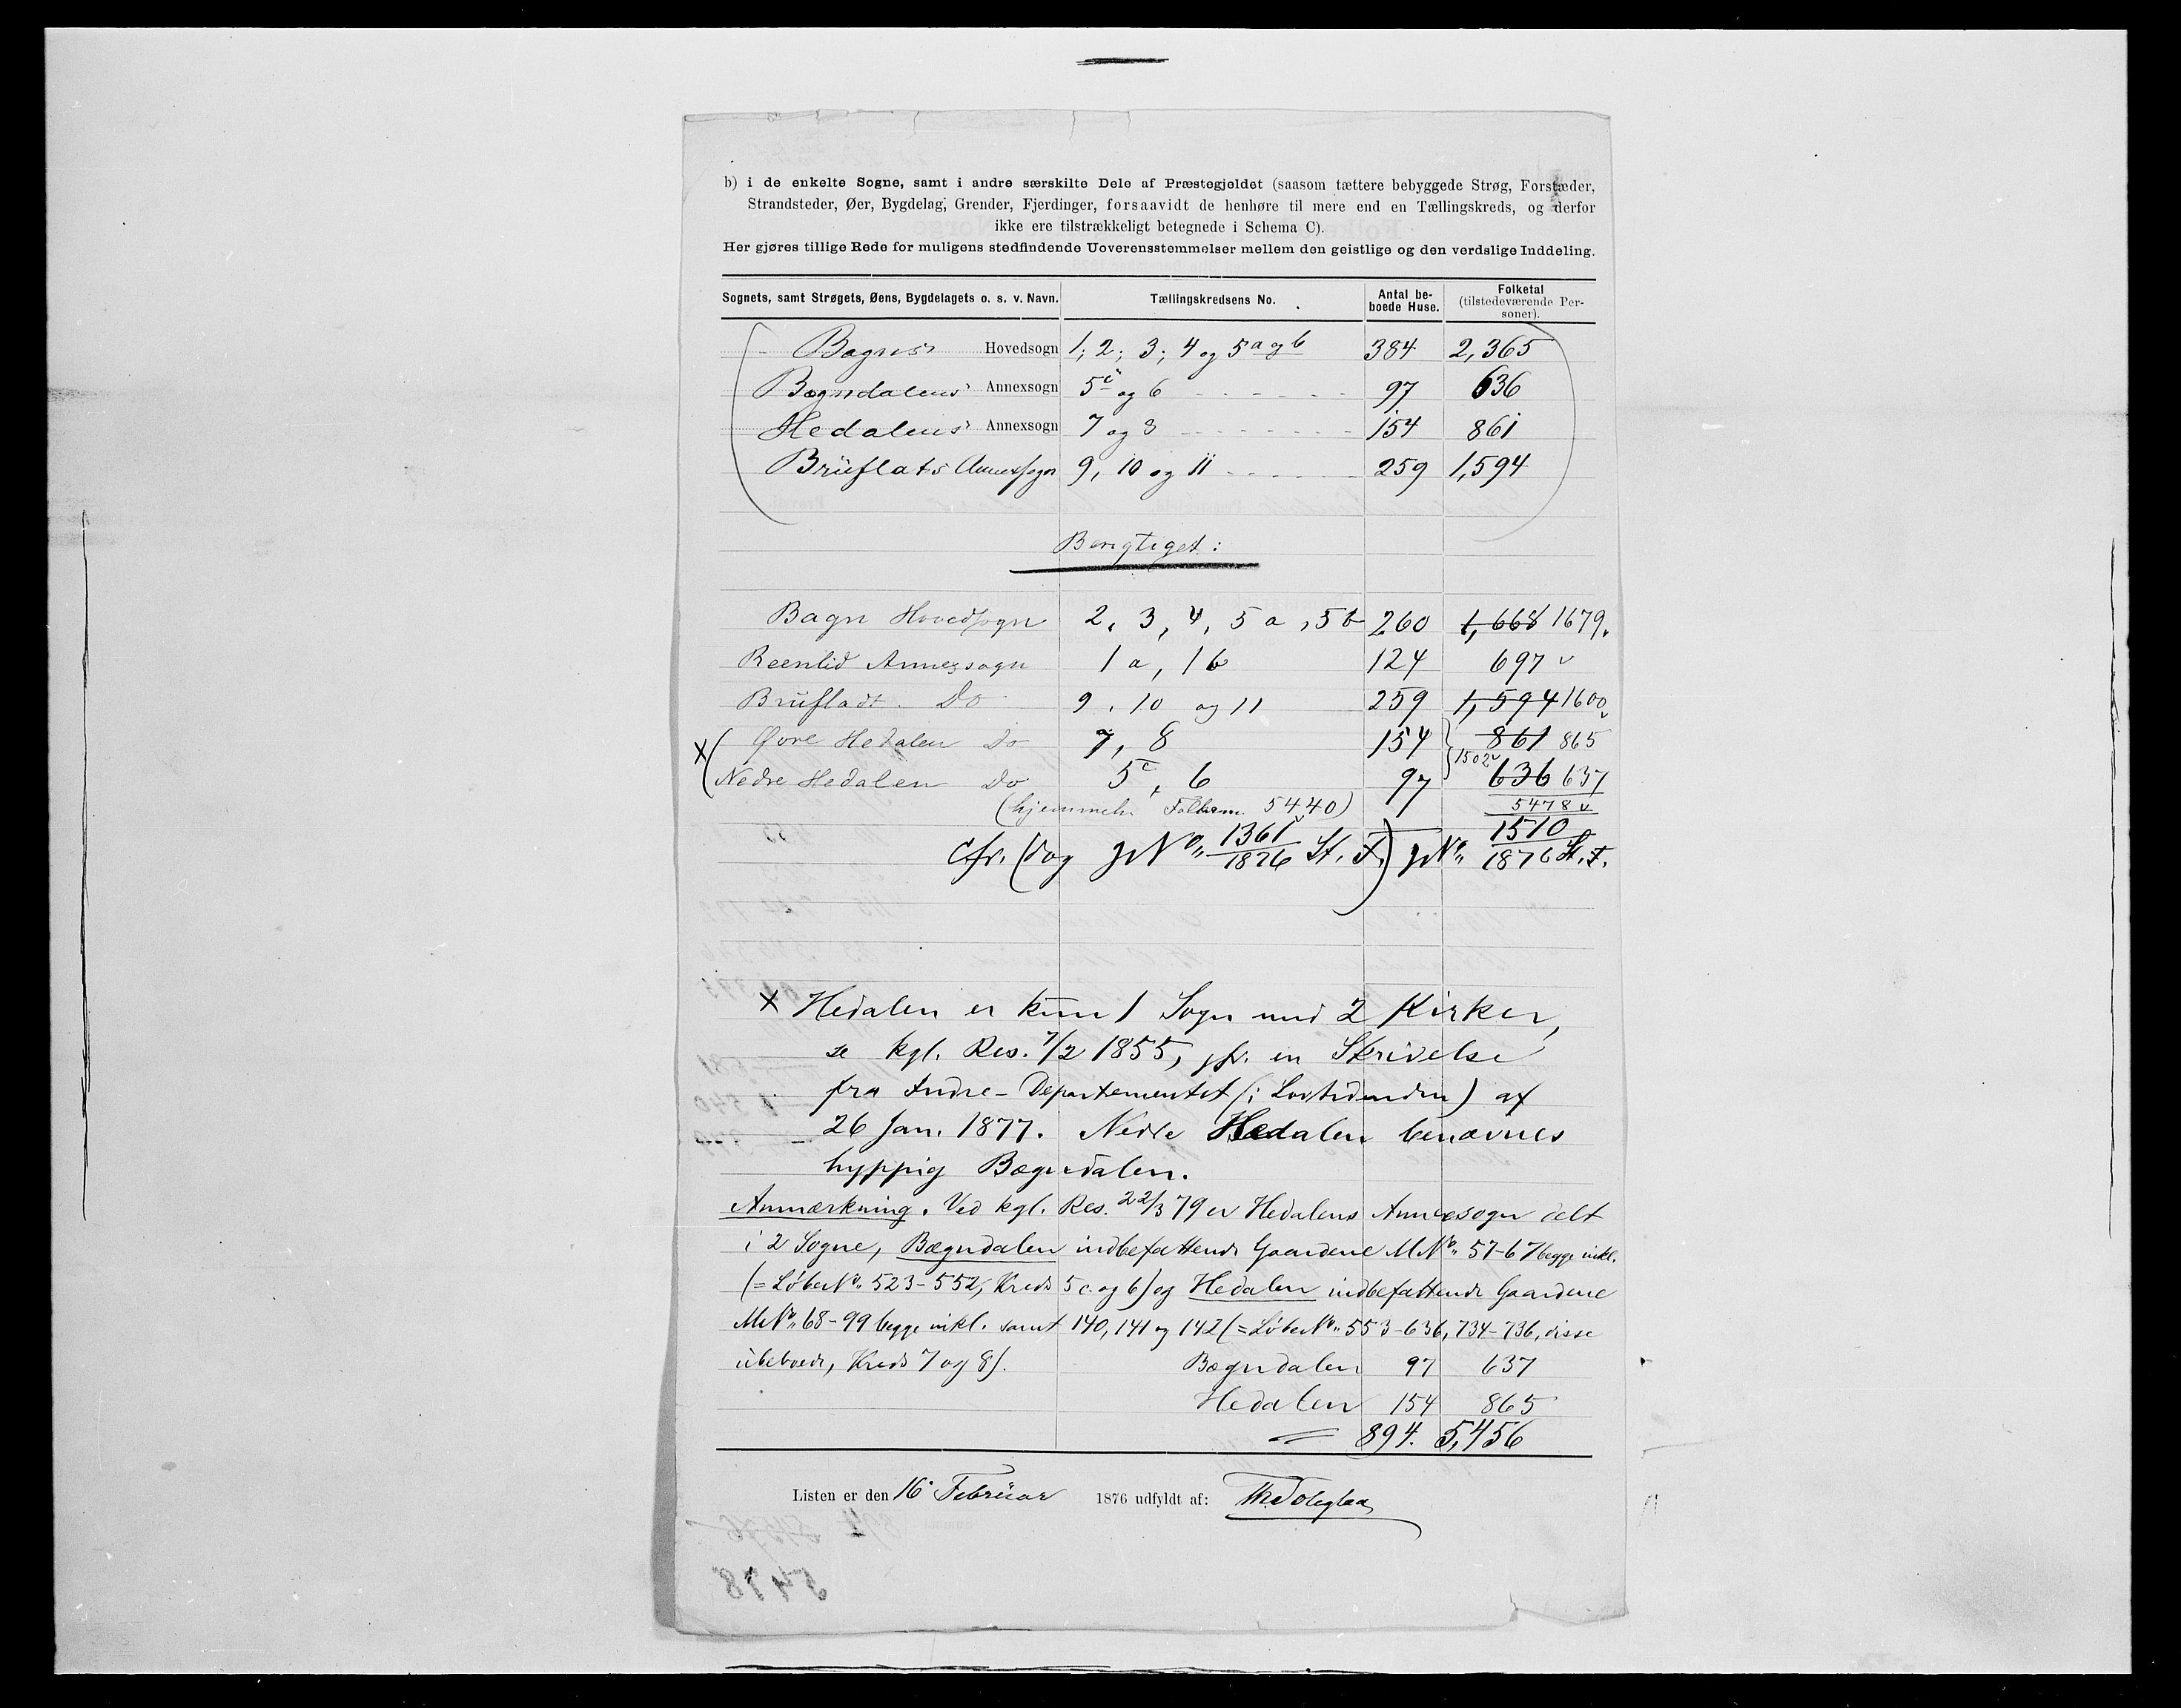 b) i de enkelte Sogne, samt i andre særskilte Dele af Præstegjeldet (saasom tættere bebyggede Strøg, Forstæder,
Strandsteder, Øer, Bygdelag, Grender, Fjerdinger, forsaavidt de henhøre til mere end en Tællingskreds, og derfor
ikke ere tilstrækkeligt betegnede i Schema C).
Her gjøres tillige Rede for muligens stedfindende Uoverensstemmelser mellem den geistlige og den verdslige Inddeling.
Sognets, samt Strøgets, Øens, Bygdelagets o. s. v. Navn. Tællingskredsens No. Antal beboede Huse. Folketal (tilstedeværende Personer).
Bagns Hovedsogn 1; 2; 3; 4 og 5 a og b 384 2,365
Bægndalens Annexsogn 5c og 6 97 636
Hedalens Annexsogn 7 og 8 154 861
Bruflats Annexsogn 9, 10 og 11 259 1,594
Berigtiget:
Bagn Hovedsogn 2, 3, 4, 5 a, 5 b 260 1,668 1679.
Reenlid Annexsogn 1 a, 1 b 124 697 v
Brufladt Do 9, 10 og 11 259 1,594 1600 v
X Øvre Hedalen Do 7, 8 154 861 865
1502 v
Nedre Hedalen Do 5c, 6 97 636 637
(hjemmeh. Folkem. 5440) 5478 v
Cfr. (dog JNo. 1361/1876 St. F.) JNo. 1510/1876 St. F.
X Hedalen er kun 1 Sogn med 2 Kirker,
se kgl. Res. 7/2 1855, jfr. en Skrivelse
fra Indre-Departementet (i Lovtidenden) af
26 Jan. 1877. Nedre Hedalen benævnes
hyppig Bægndalen.
Anmærkning. Ved kgl. Res. 22/3 79 er Hedalens Annexsogn delt
i 2 Sogne, Bægndalen indbefattende Gaardene MNo. 57-67 begge inkl.
(= LøbeNo. 523-552, Kreds 5c. og 6) og Hedalen indbefattende Gaardene
MNo. 68-99 begge inkl. samt 140, 141 og 142 (= LøbeNo. 553-636, 734-736, disse
ubeboede, Kreds 7 og 8).
Bægndalen 97 637
Hedalen 154 865
= 894. 5,456
Listen er den 16 Februar 1876 udfyldt af: